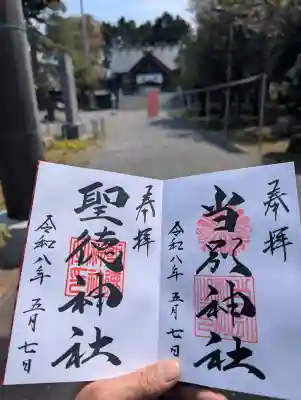 奉拝
当別神社
令和八年 五月 七日
奉拝
聖徳神社
令和八年 五月 七日